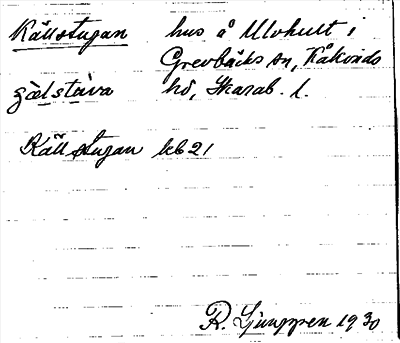 Källstugan hus å Ulvhult i
Grevbäcks sn, Kåkinds
hd, Skarab. l.
Källstugan kb 21
R. Ljunggren 1930